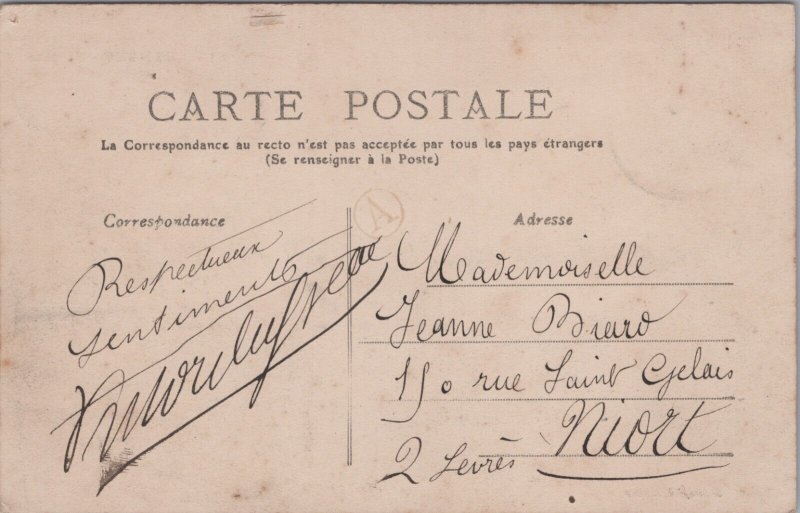 CARTE POSTALE
La Correspondance au recto n'est pas acceptée par tous les pays étrangers
(Se renseigner à la Poste)
Correspondance
Adresse
A
Respectueux
sentiments
Mademoiselle
Jeanne Biard
150 rue Saint Gelais
Niort
2 Sevrès